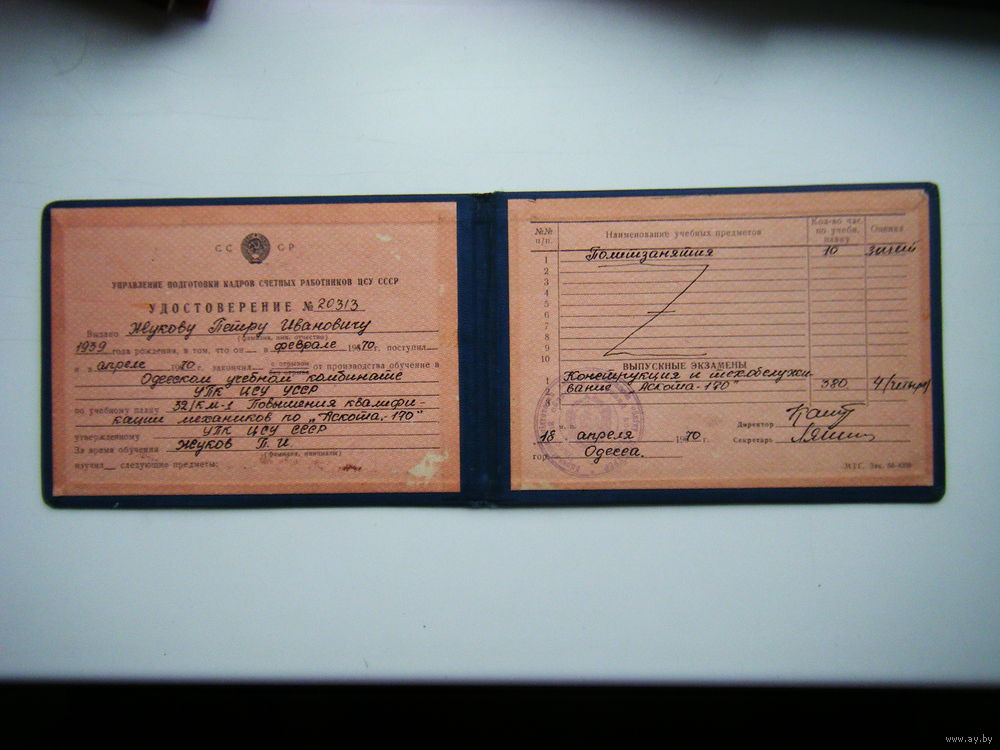 СС СР
УПРАВЛЕНИЕ ПОДГОТОВКИ КАДРОВ СЧЕТНЫХ РАБОТНИКОВ ЦСУ СССР
УДОСТОВЕРЕНИЕ № 20313
Выдано Жукову Петру Ивановичу
(фамилия, имя, отчество)
1939 года рождения, в том, что он в феврале 1970 г. поступил
и в апреле 1970 г. закончил с отрывом от производства обучение в
Одесском учебном комбинате
УПК ЦСУ УССР
по учебному плану 32/КМ-1 Повышения квалифи-
кации механиков по "Аскота-170"
утвержденному УПК ЦСУ СССР
За время обучения Жуков П. И.
(фамилия, инициалы)
изучил следующие предметы:
№№ п/п. Наименование учебных предметов Кол-во час. по учебн. плану Оценка
1 Политзанятия 10 зачет
2
3
4
5
6
7
8
9
10
ВЫПУСКНЫЕ ЭКЗАМЕНЫ
1 Конструкция и техобслужи
2 вание "Аскота-170" 380 4 (четыре)
3
м. п.
Директор
18 апреля 1970 г. Секретарь
гор. Одесса.
МТГ. Зак.
www.ay.by